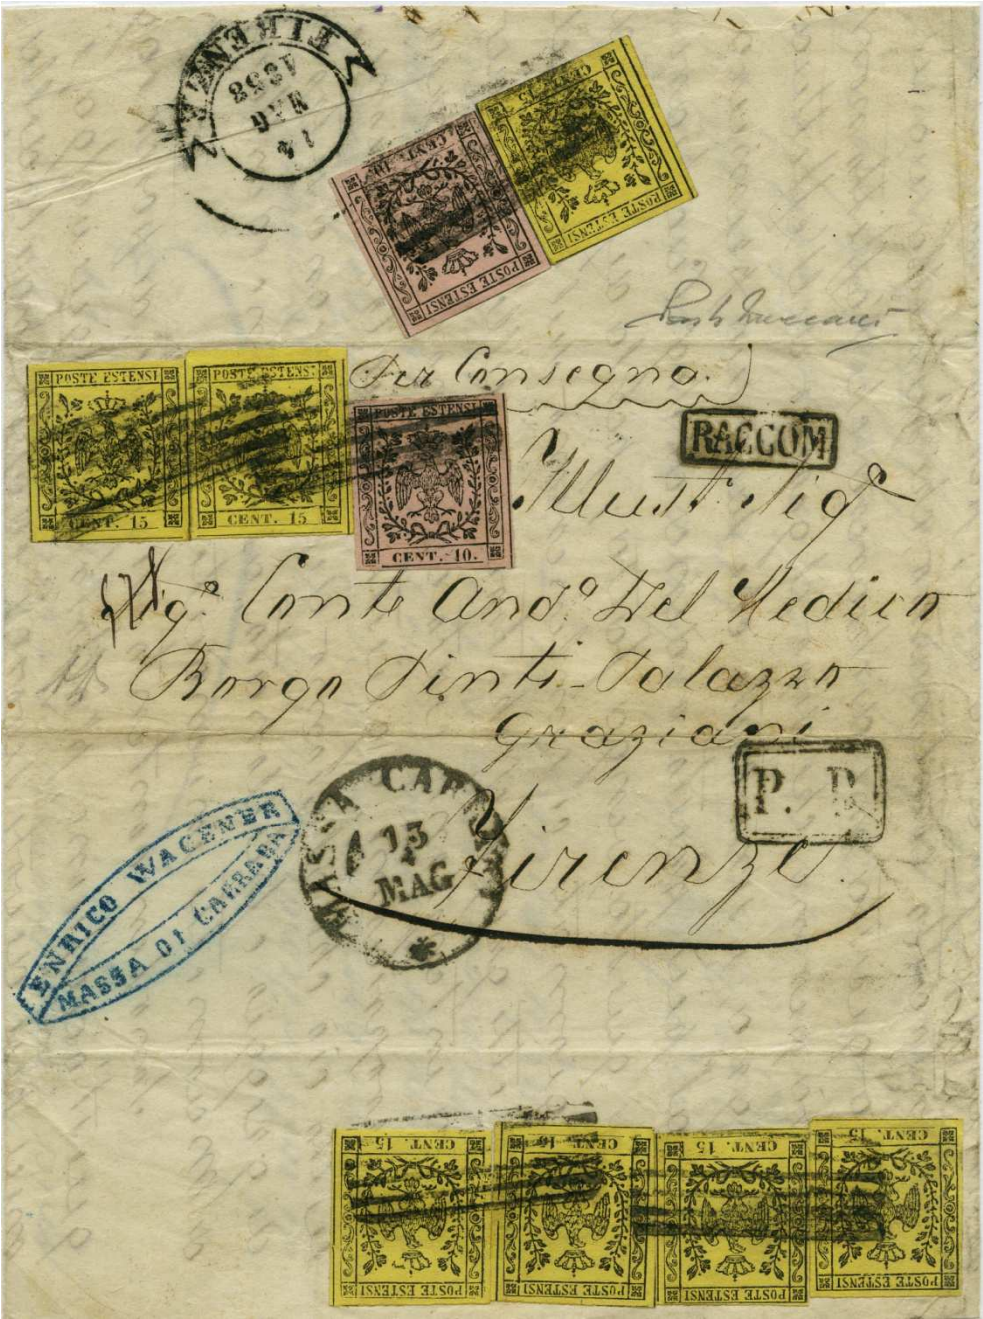 FIRENZE
14
MAG
1858
CENT. 15
POSTE ESTENSI
CENT. 10
POSTE ESTENSI
POSTE ESTENSI
CENT. 15
POSTE ESTENSI
CENT. 15
POSTE ESTENSI
CENT. 10.
Per Consegna.
RACCOM
Illust. Sigr
Sigr. Conte Andrº. Del Medico
Borgo Pinti - Palazzo
Graziani
P. D.
Firenze.
MASSA CARRARA
13
MAG
ENRICO WACENER
MASSA DI CARRARA
CENT. 15
POSTE ESTENSI
CENT. 15
POSTE ESTENSI
CENT. 15
POSTE ESTENSI
CENT. 15
POSTE ESTENSI